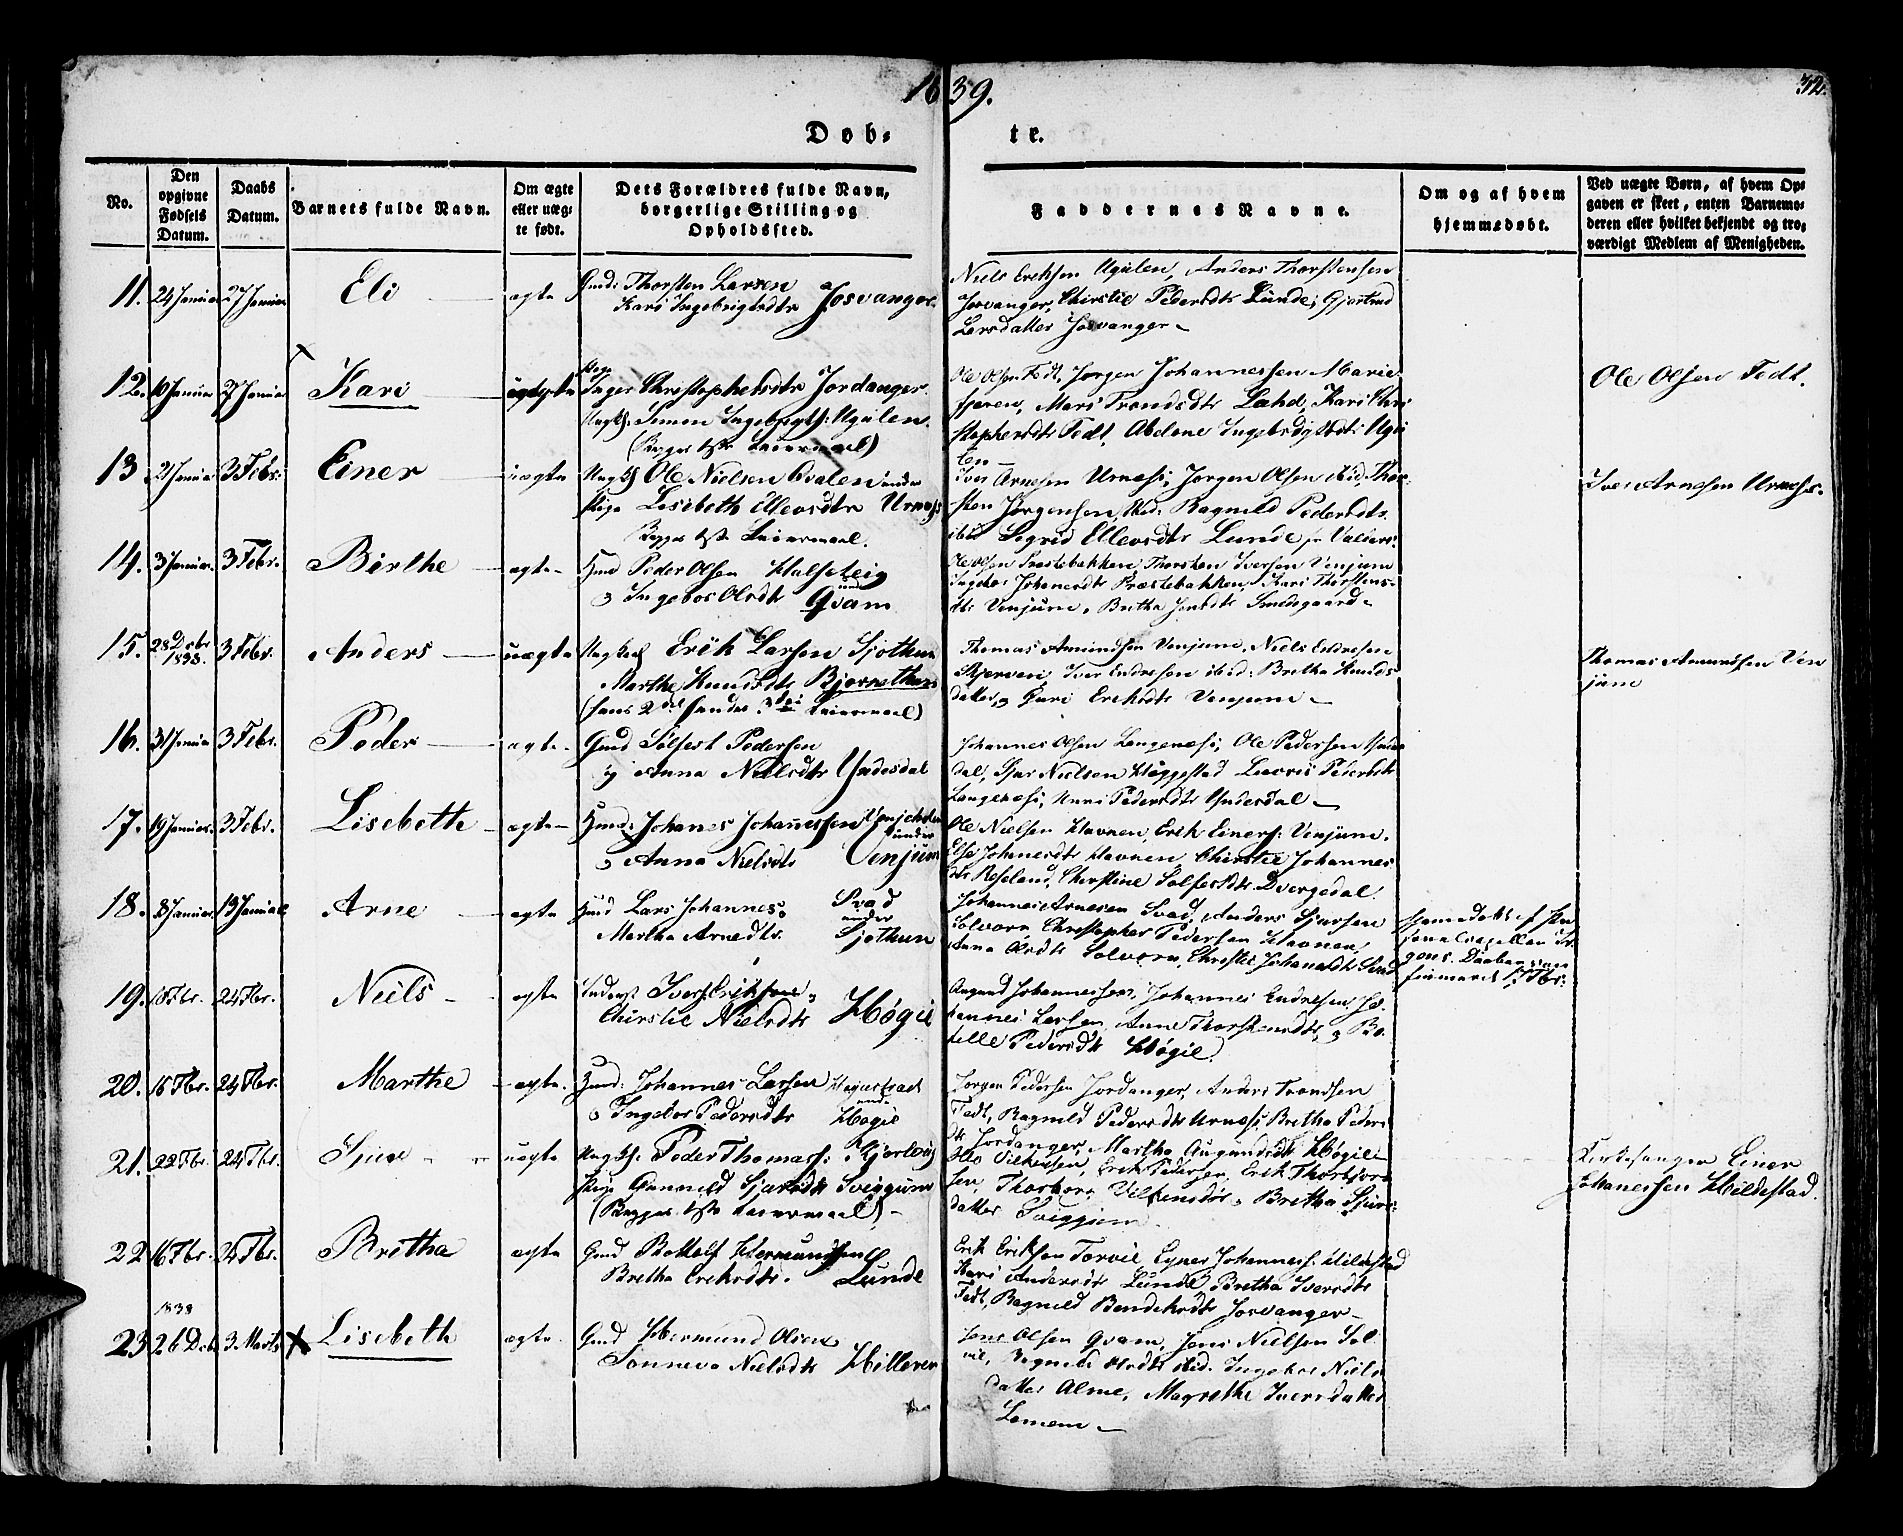 1839.
32.
Døb-
te.
No.
Den opgivne Fødsels Datum.
Daabs Datum.
Barnets fulde Navn.
Om ægte eller uægte født.
Dets Forældres fulde Navn, borgerlige Stilling og Opholdssted.
Faddernes Navne.
Om og af hvem hjemmedøbt.
Ved uægte Børn, af hvem Opgaven er skeet, enten Barnemoderen eller hvilket bekjendt og troværdigt Medlem af Menigheden.
11. 24 Januar 27 Januar Eli ægte Gmd: Thorsten Larsen
Kari Ingebrigtsdtr Josvanger
Niels Eriksen Ugulen, Anders Thorstensen
Josvanger, Chirstie Pedersdtr Lunde, Gjertrud
Larsdatter Josvanger
12. 10 Januar 27 Januar Kari uægte
Inger Christophersdtr Jordanger
Ungk: Simon Ingebrigts: Ugulen.
(Begges 1ste Leiermaal)
Ole Olsen Fedt, Jørgen Johannessen Marie-
fjæren, Mari Trondsdtr Lahd, Kari Chri-
stophersdtr Fedt, Abelone Ingebrigtsdtr Ugu-
len
Ole Olsen Fedt.
13 21 Januar 3 Febr: Einer uægte Ungk: Ole Nielsen Qvalen under
Pige Lisebeth Ellevsdtr Urness
Begges 1ste Leiermaal.
Iver Arnesen Urness, Jørgen Olsen ibid, Thor-
sten Jørgensen, ibid: Ragnild Pedersdtr
ibid Sigrid Ellevsdtr Lunde
Iver Arnesen Urness.
14. 3 Januar. 3 Febr. Birthe ægte Huusmd Peder Olsen Halsteig
og Ingebor Olsdtr under Qvam
Ole Olsen Præstebakken, Thorsten Iversen Venjum
Ingebor Johanesdtr Præstebakken, Kari Thorstens-
dtr Venjum, Britha Jensdtr Smedegaard
15. 28 Decbr 1838. 3 Febr. Anders uægte Ungkarl Erik Larsen Sjøthun
Marthe Knudsdtr Bjørnethun
(hans 2det hendes 3die Leiermaal)
Thomas Amundsen Venjum, Niels Endresen
Skjerven, Iver Endresen ibid: Bretha Knuds-
datter, og Guri Eriksdtr Venjum
Thomas Amundsen Ven
jum
16. 31 Januar 3 Febr. Peder ægte Gmd Solfest Pedersen
og Anna Nielsdtr Yndesdal
Johannes Olsen Langenæss, Ole Pedersen Yndes
dal, Sjur Nielsen Haggestad Lavris Pedersdtr
Langenæss, Anna Pedersdtr Yndesdal
17. 19 Januar. 3 Febr. Lisebethe ægte Huusmd: Johanes Johannessen
under
og Anna Nielsdtr Venjum
Ole Nielsen Havnen, Erik Einers: Venjum,
Else Johanesdtr Havnen, Chirstie Johannes
dtr Røseland, Christine Solfestdtr Dvergedal.
18. 8 Januar. 13 Januar Arne ægte Huusmd Lars Johannes: Svad
under
Martha Arnesdtr. Sjøthun
Johannes Arnesen Svad, Anders Sjursen
Solvorn, Christopher Pedersen Havnen,
Anna Olsdtr Solvorn, Christie Johanesdtr Svad
19. 18 Fbr. 24 Fbr. Niels ægte Inderst Iver Eriksen og
Chirstie Nielsdtr Høgie
Augund Johannessen, Johannes Endresen, Jo-
hannes Larsen, Anne Thorstensdtr, og Bo-
thille Pedersdtr Høgie.
20. 16 Fbr. 24 Fbr. Marthe ægte. Huusmd: Johannes Larsen
under
og Ingebor Pedersdtr Høgie
Jørgen Pedersen Jordanger, Anders Trondsen
Fedt, Ragnild Pedersdtr Urness, Bretha Peders
dtr Jordanger, Martha Augundsdtr Høgie
21. 22 Fbr. 24 Fbr. Sjur uægte Ungk: Peder Thomass: Kjørlvig
Pige Gunnild Sjursdtr Sviggum
(Begges 1ste Leiermaal)
Erik Pedersen, Erik Thorbjørn
sen, Thorbora Villumsdtr, Bretha Sjurs-
datter Sviggum
Kirkesanger Einer
Johanessen Hildestad.
22 16 Fbr. 24 Fbr. Britha ægte Gmd Bottolf Hermundsen
Bretha Eriksdtr. Lunde
Erik Eriksen Torvie, Eyner Johanness: Hildestad
Kari Andersdtr Lunde, Bretha Iversdtr
Fedt, Ragnild Bendiksdtr Josvanger
1838
23 26 Dcb. 3 Marts Lisebeth ægte Gmd Hermund Olsen
Sønneva Nielsdtr Hilleren
Jens Olsen Qvam, Jens Nielsen Sol-
vie, Ragnild Olsdtr ibid. Ingebor Niels
datter Alme, Magrethe Iversdatter
Lomem